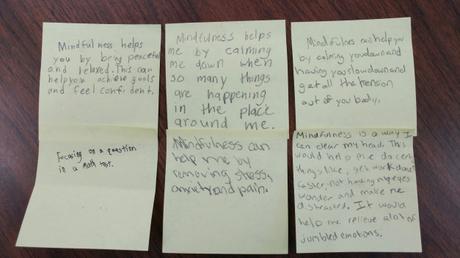 Mindfulness helps
you by being peaceful
and relaxed. This can
help you achieve goals
and feel confident.
Focusing on a question
in a math test.
Mindfulness helps
me by calming
me down when
so many things
are happening
in the place
around me.
Mindfulness can
help me by
removing stress,
anxiety and pain.
Mindfulness can help you
by calming you down and
having you slow down and
get all the tension
out of you body.
Mindfulness is a way I
can clear my head. This
would help me do certain
things like, get work done
faster, not having my eyes
wonder and make me
distracted. It would
help me relieve a lot of
jumbled emotions.